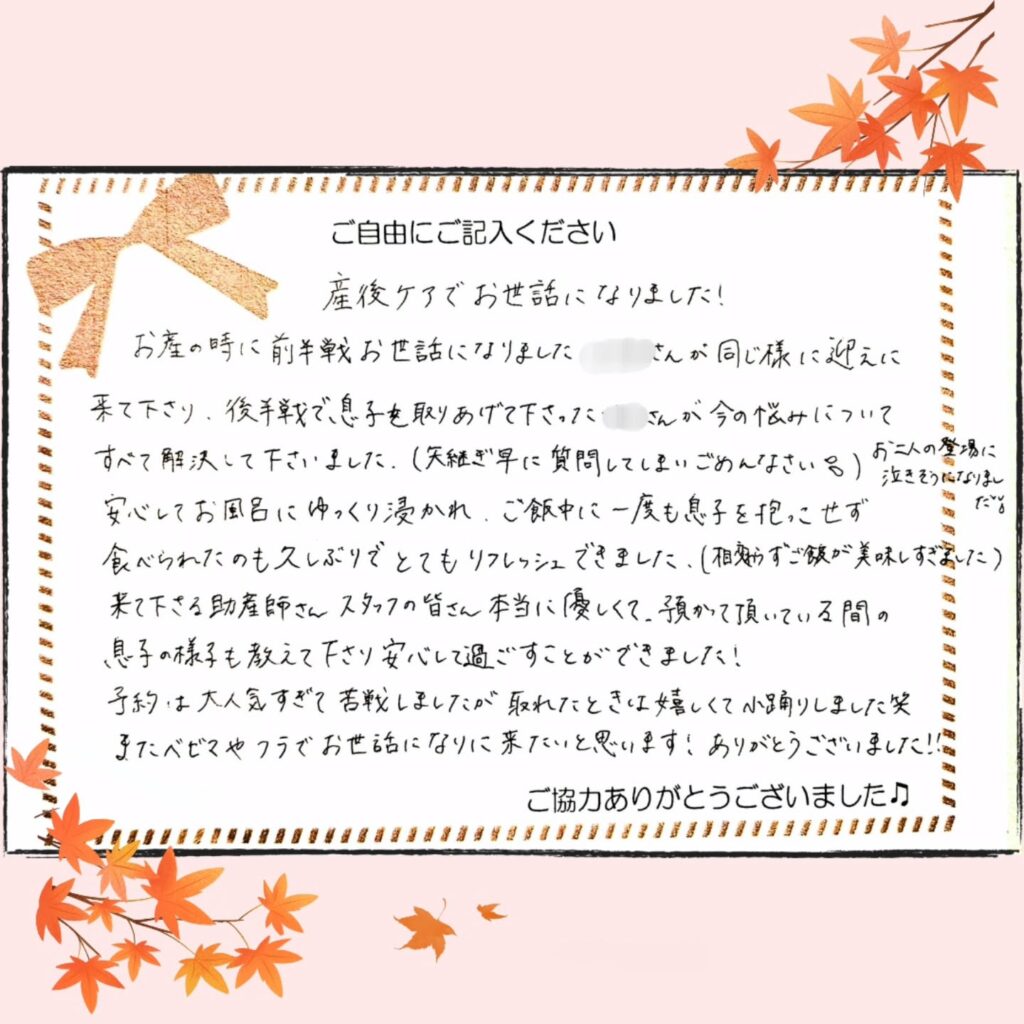 ご自由にご記入ください
産後ケアでお世話になりました!
お産の時に前半戦お世話になりました さんが同じ様に迎えに
来て下さり、後半戦で息子を取りあげて下さった さんが今の悩みについて
すべて解決して下さいました。(矢継ぎ早に質問してしまいごめんなさい)
お二人の登場に
泣きそうになりまし
た
安心してお風呂にゆっくり浸かれ、ご飯中に一度も息子を抱っこせず
食べられたのも久しぶりでとてもリフレッシュできました。(相変らずご飯が美味しすぎました)
来て下さる助産師さんスタッフの皆さん本当に優しくて、預かって頂いている間の
息子の様子も教えて下さり安心して過ごすことができました!
予約は大人気すぎて苦戦しましたが取れたときは嬉しくて小踊りしました笑
またベビマやフラでお世話になりに来たいと思います!ありがとうございました!!
ご協力ありがとうございました♫